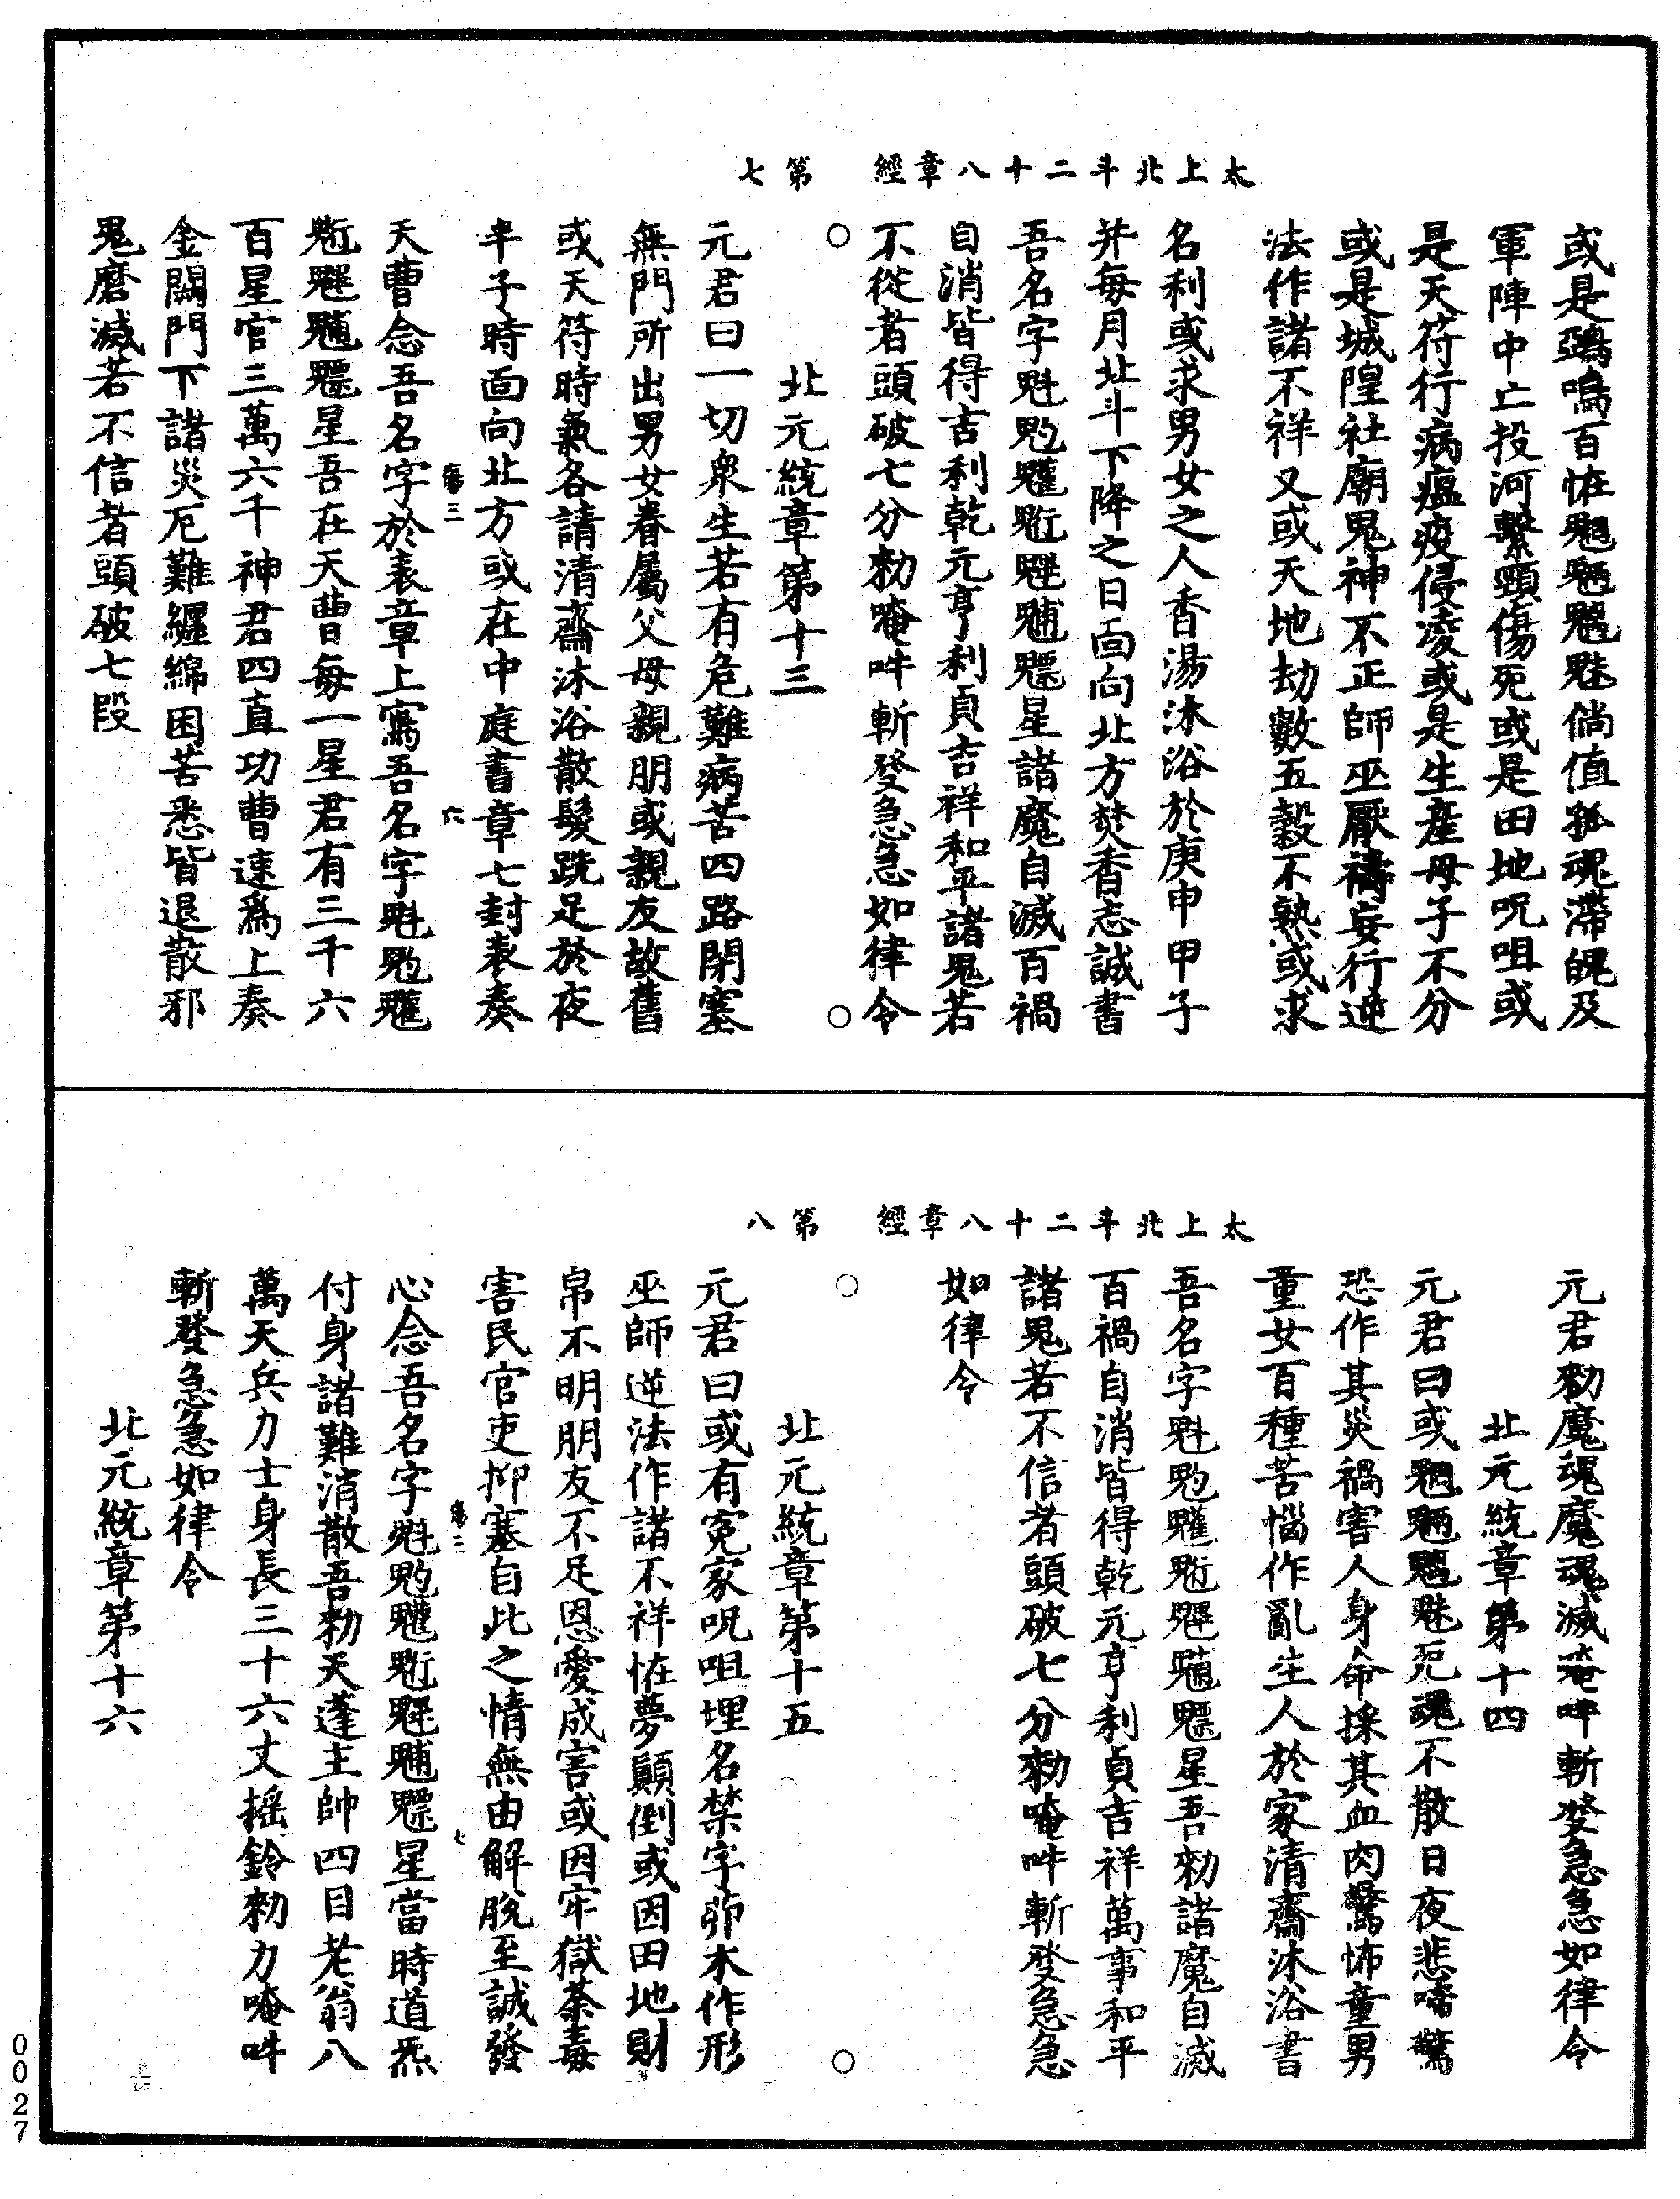 太上北斗二十八章經 第七
或是鵶鳴百恠魍魎魑魅倘值孤魂滯魄及
軍陣中亡投河繫頸傷死或是田地呪咀或
是天符行病瘟疫侵凌或是生產母子不分
或是城隍社廟鬼神不正師巫厭禱妄行逆
法作諸不祥又或天地劫數五穀不熟或求
名利或求男女之人香湯沐浴於庚申甲子
并每月北斗下降之日面向北方焚香志誠書
吾名字魁𩲃䰢魒魓䰠魒星諸魔自滅百禍
自消皆得吉利乾元亨利貞吉祥和平諸鬼若
不從者頭破七分勑唵吽斬發急急如律令
北元統章第十三
元君曰一切衆生若有危難病苦四路閉塞
無門所出男女眷屬父母親朋或親友故舊
或天符時氣各請清齋沐浴散髮跣足於夜
半子時面向北方或在中庭書章七封表奏
天曹念吾名字於表章上寫吾名字魁
星吾在天曹每一星君有三千六
百星官三萬六千神君四直功曹速爲上奏
金闕門下諸災厄難纏綿困苦悉皆退散邪
鬼磨滅若不信者頭破七段
太上北斗二十八章經 第八
元君勑魔魂魔魂滅唵吽斬發急急如律令
北元統章第十四
元君曰或魍魎魑魅死魂不散日夜悲啼驚
恐作其災禍害人身命採其血肉驚怖童男
童女百種苦惱作亂生人於家清齋沐浴書
吾名字魁星吾勑諸魔自滅
百禍自消皆得乾元亨利貞吉祥萬事和平
諸鬼若不信者頭破七分勑唵吽斬發急急
如律令
北元統章第十五
元君曰或有冤家呪咀埋名禁字茆木作形
巫師逆法作諸不祥恠夢顛倒或因田地財
帛不明朋友不足恩愛成害或因牢獄荼毒
害民官吏抑塞自此之情無由解脫至誠發
心念吾名字魁星當時道炁
付身諸難消散吾勑天蓬主帥四目老翁八
萬天兵力士身長三十六丈搖鈴勑力唵吽
斬發急急如律令
北元統章第十六
0027